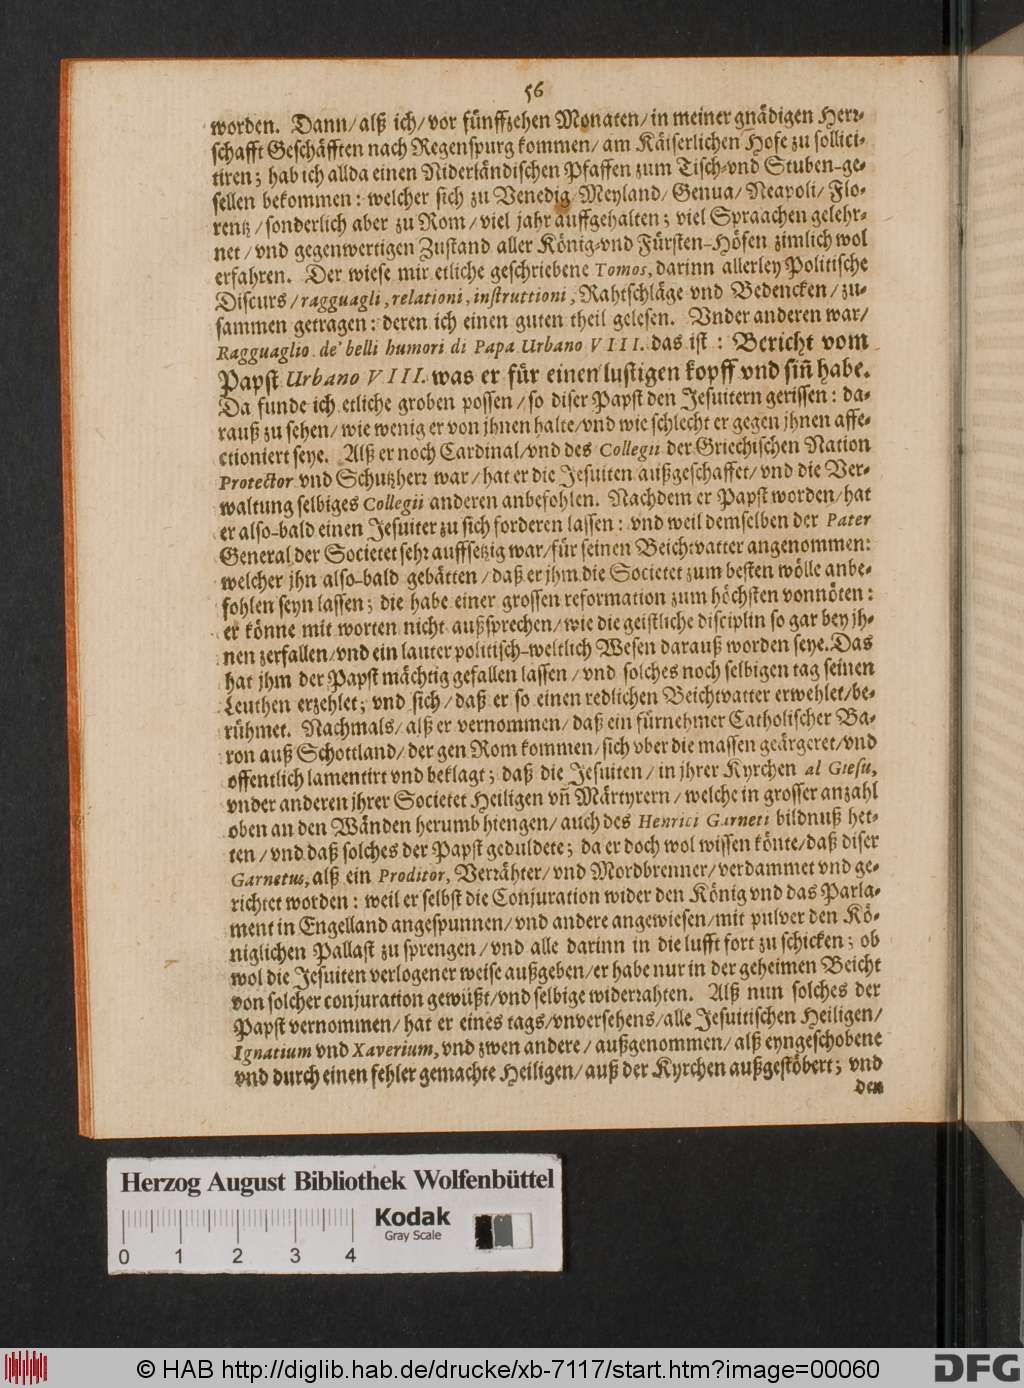 56
worden. Dann/ alß ich/ vor fünffzehen Monaten/ in meiner gnädigen Herꝛ-
schafft Geschäfften nach Regenspurg kommen/ am Käiserlichen Hofe zu sollici-
tiren; hab ich allda einen Niderländischen Pfaffen zum Tisch-vnd Stuben-ge-
sellen bekommen: welcher sich zu Venedig/ Meyland/ Genua/ Neapoli/ Flo-
rentz/ sonderlich aber zu Rom/ viel jahr auffgehalten; viel Spraachen gelehr-
net/ vnd gegenwertigen Zustand aller König-vnd Fürsten-Höfen zimlich wol
erfahren. Der wiese mir etliche geschriebene Tomos, darinn allerley Politische
Discurs/ ragguagli, relationi, instruttioni, Rahtschläge vnd Bedencken/ zu-
sammen getragen: deren ich einen guten theil gelesen. Vnder anderen war/
Ragguaglio de' belli humori di Papa Urbano VIII. das ist: Bericht vom
Papst Urbano VIII. was er für einen lustigen kopff vnd siñ habe.
Da funde ich etliche groben possen/ so diser Papst den Jesuitern gerissen: da-
rauß zu sehen/ wie wenig er von jhnen halte/ vnd wie schlecht er gegen jhnen affe-
ctioniert seye. Alß er noch Cardinal/ vnd des Collegii der Griechischen Nation
Protector vnd Schutzherꝛ war/ hat er die Jesuiten außgeschaffet/ vnd die Ver-
waltung selbiges Collegii anderen anbefohlen. Nachdem er Papst worden/ hat
er also-bald einen Jesuiter zu sich forderen lassen: vnd weil demselben der Pater
General der Societet sehꝛ auffsetzig war/ für seinen Beichtvatter angenommen:
welcher jhn also-bald gebätten/ daß er jhm die Societet zum besten wölle anbe-
fohlen seyn lassen; die habe einer grossen reformation zum höchsten vonnöten:
er könne mit worten nicht außsprechen/ wie die geistliche disciplin so gar bey jh-
nen zerfallen/ vnd ein lauter politisch-weltlich Wesen darauß worden seye. Das
hat jhm der Papst mächtig gefallen lassen/ vnd solches noch selbigen tag seinen
Leuthen erzehlet; vnd sich/ daß er so einen redlichen Beichtvatter erwehlet/ be-
rühmet. Nachmals/ alß er vernommen/ daß ein fürnehmer Catholischer Ba-
ron auß Schottland/ der gen Rom kommen/ sich vber die massen geärgeret/ vnd
offentlich lamentirt vnd beklagt; daß die Jesuiten/ in jhrer Kyrchen al Giesu,
vnder anderen jhrer Societet Heiligen vñ Märtyrern/ welche in grosser anzahl
oben an den Wänden herumb hiengen/ auch des Henrici Garneti bildnuß het-
ten/ vnd daß solches der Papst geduldete; da er doch wol wissen könte/ daß diser
Garnetus, alß ein Proditor, Verꝛähter/ vnd Mordbrenner/ verdammet vnd ge-
richtet worden: weil er selbst die Conjuration wider den König vnd das Parla-
ment in Engelland angespunnen/ vnd andere angewiesen/ mit pulver den Kö-
niglichen Pallast zu sprengen/ vnd alle darinn in die lufft fort zu schicken; ob
wol die Jesuiten verlogener weise außgeben/ er habe nur in der geheimen Beicht
von solcher conjuration gewüßt/ vnd selbige widerꝛahten. Alß nun solches der
Papst vernommen/ hat er eines tags/ vnversehens/ alle Jesuitischen Heiligen/
Ignatium vnd Xaverium, vnd zwen andere/ außgenommen/ alß eyngeschobene
vnd durch einen fehler gemachte Heiligen/ auß der Kyrchen außgestöbert; vnd
den
Herzog August Bibliothek Wolfenbüttel
Kodak
Gray Scale
0 1 2 3 4
© HAB http://diglib.hab.de/drucke/xb-7117/start.htm?image=00060
DFG